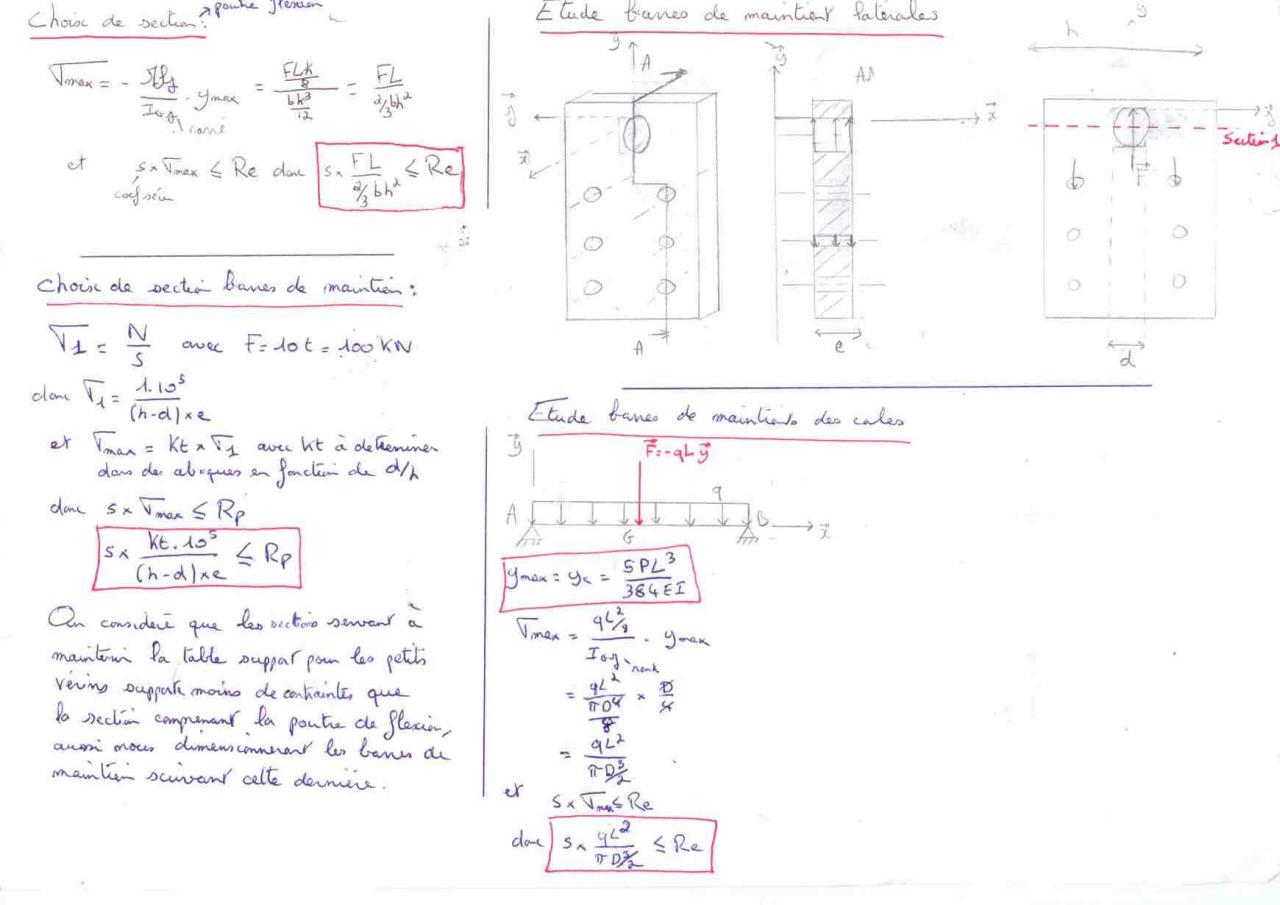 Choix de section :
poutre flexion
σmax = - Mfz / Iogz . ymax = (FLh/8) / (bh³/12) = FL / (2/3 bh²)
carré
et s × σmax ≤ Re donc s × FL / (2/3 bh²) ≤ Re
coef sécu
Choix de section barres de maintien :
σ1 = N / S avec F = 10 t = 100 KN
donc σ1 = 1.10⁵ / (h-d) × e
et σmax = Kt × σ1 avec Kt à determiner
dans des abaques en fonction de d/h
donc s × σmax ≤ Rp
s × Kt . 10⁵ / (h-d) × e ≤ Rp
On considère que les sections servant à
maintenir la table support pour les petits
vérins supporte moins de contraintes que
la section comprenant la poutre de flexion,
aussi nous dimensionneront les barres de
maintien suivant cette dernière.
Etude barres de maintient latérales
y
A
x
A
y
AA
x
e
h
y
Section 1
F
d
Etude barres de maintients des cales
y
F = -qL y
q
A
B
G
x
ymax = yc = 5PL³ / 384EI
σmax = (qL²/8) / Iogz . ymax
= qL² / (πD⁴/8) × D/4
= qL² / (πD³/2)
et s × σmax ≤ Re
donc s × qL² / (πD³/2) ≤ Re